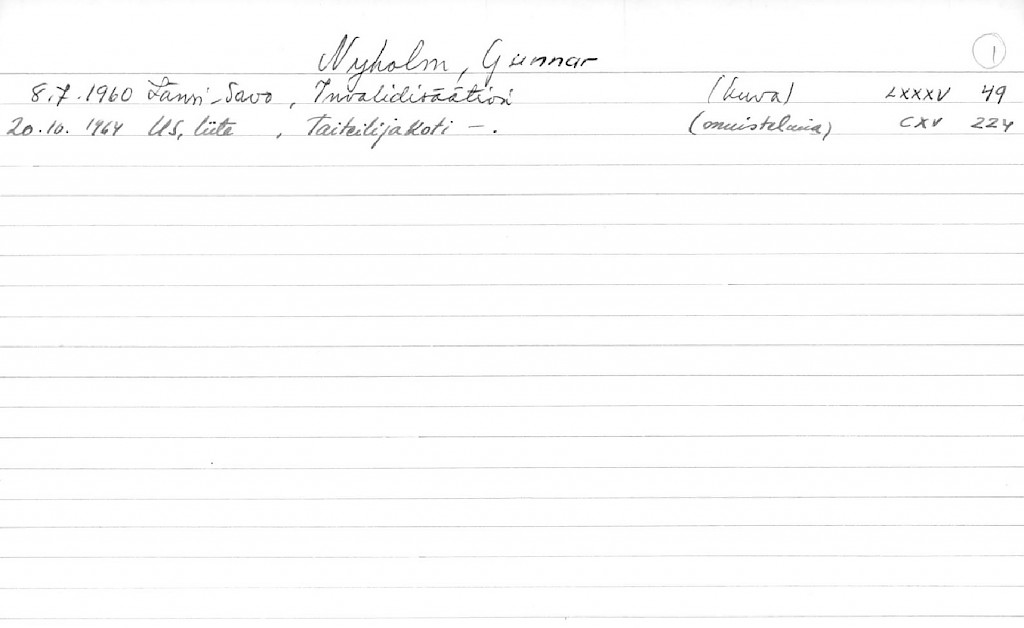 Nyholm, Gunnar 1
8.7.1960 Länsi-Savo, Invalidisäätiö (kuva) LXXXV 49
20.10.1964 US, liite, Taiteilijakoti –. (muistelmia) CXV 224